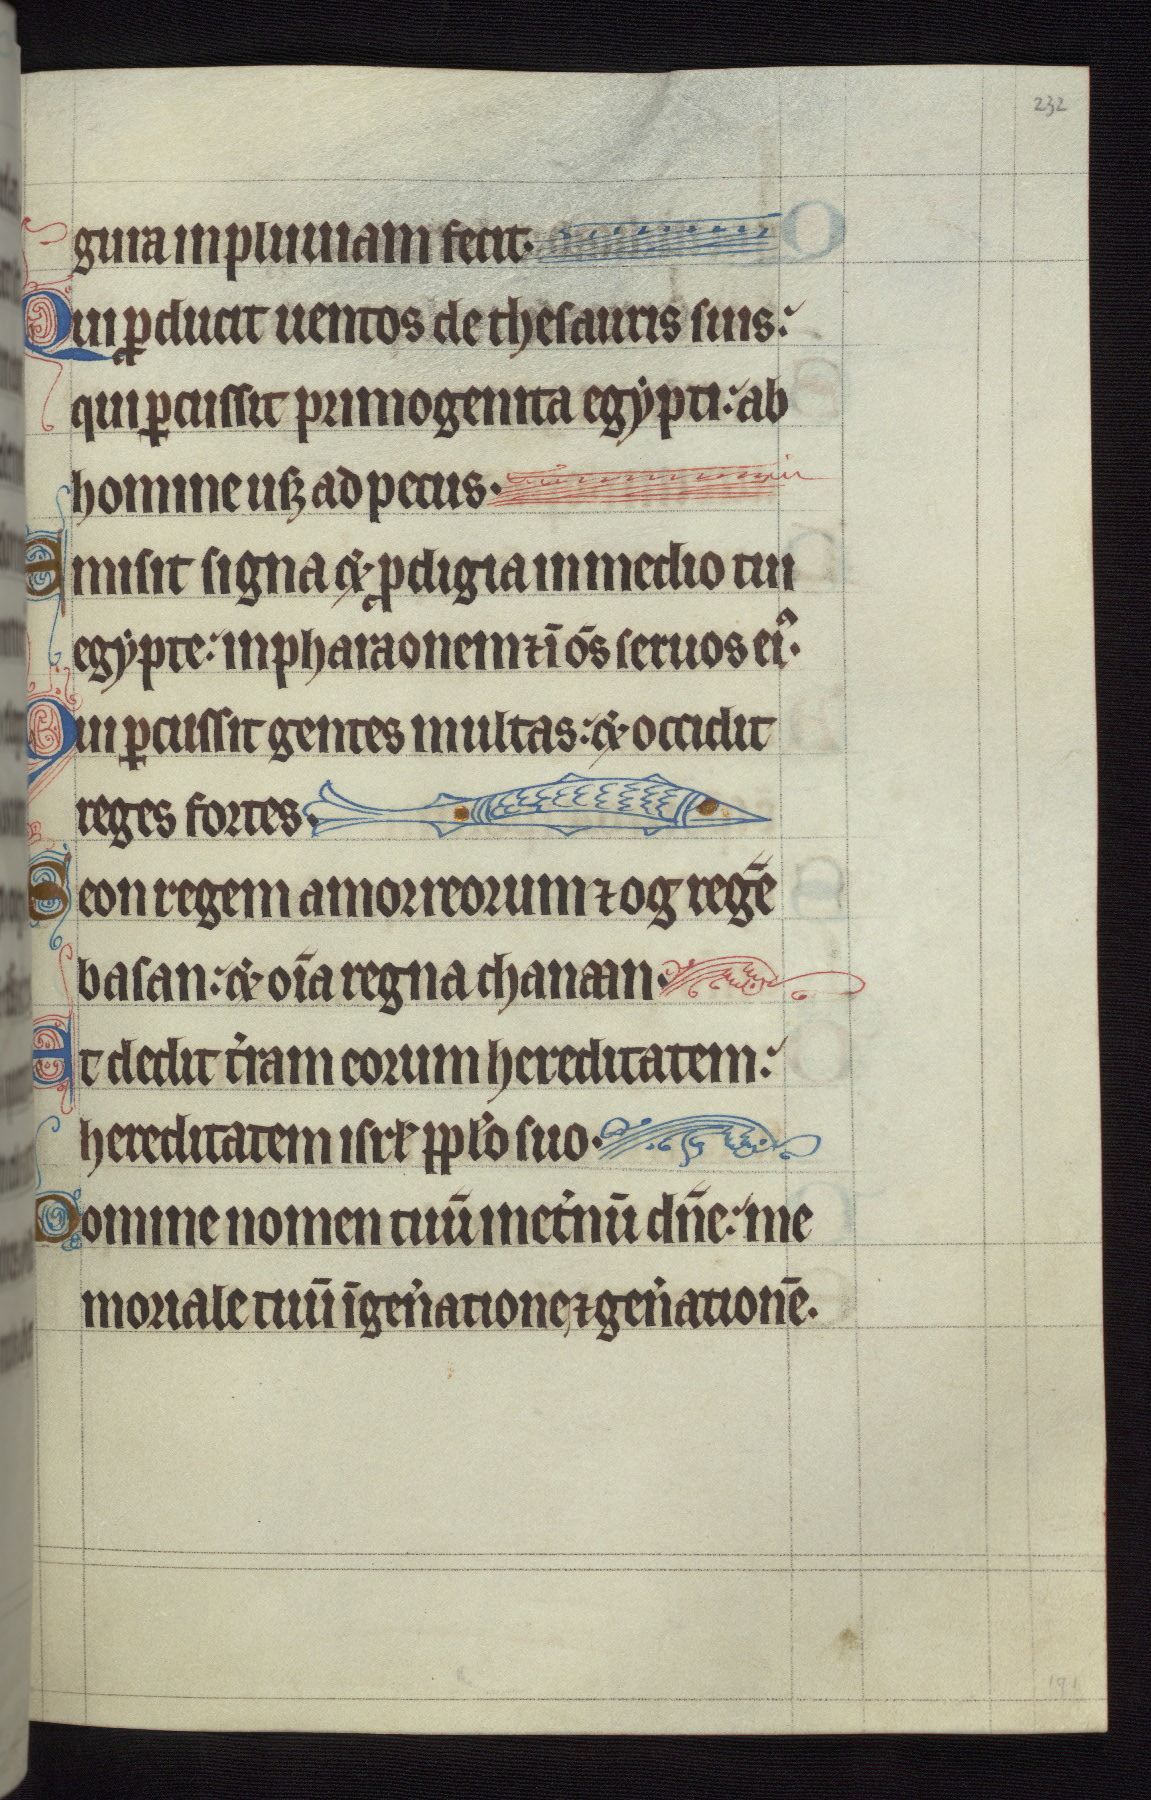 232
gura in pluuiam fecit.
Qui ꝓducit uentos de thesauris suis:
qui ꝑcussit primogenita egẏpti: ab
homine usꝫ ad pecus.
Emisit signa & ꝓdigia in medio tui
egẏpte: in pharaonem ⁊ ī o͞s seruos eiꝰ.
Qui ꝑcussit gentes multas: & occidit
reges fortes.
Seon regem amorreorum ⁊ og regē
basan: & oīa regna chanaan.
Et dedit t̉ram eorum hereditatem:
hereditatem isrł pplo suo.
Domine nomen tuū in et̉nū dn̄e: me
moriale tuū ī gen̉atione ⁊ gen̉ationē.
191